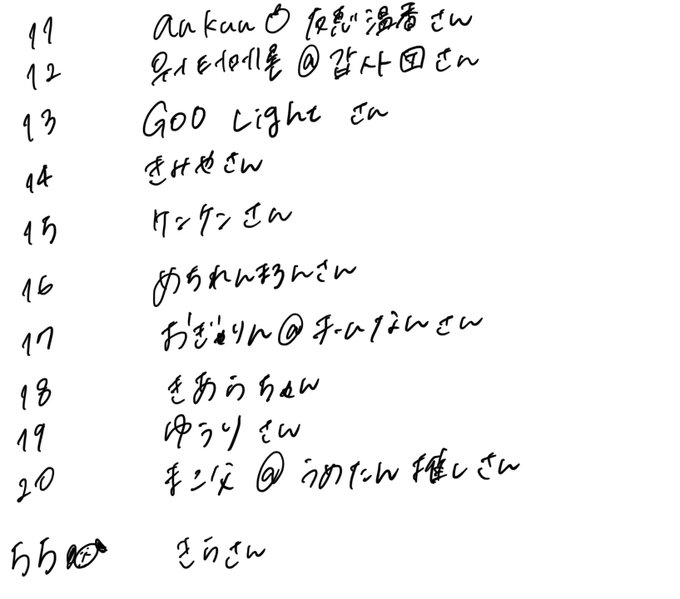 11 aukuu 友恵温番さん
12 @감사団さん
13 GOO Lightさん
14 きみやさん
15 ケンケンさん
16 めちれんまろんさん
17 おぎゃりん@まーいなんさん
18 きあらちゃん
19 ゆうりさん
20 まこ父@うめたん推しさん
55 きらさん